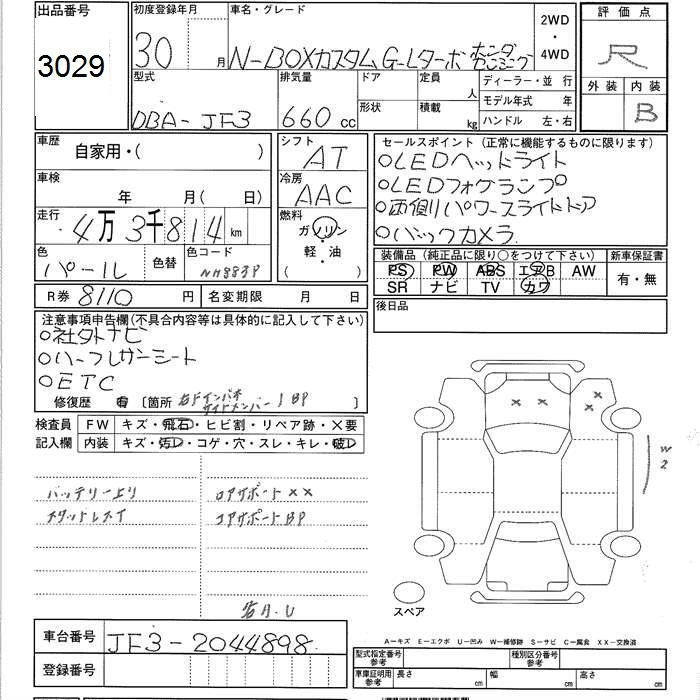 出品番号
3029
初度登録年月
30 月
車名・グレード
N-BOXカスタム G-Lターボ ホンダ センシング
2WD
・
4WD
評価点
R
外装 内装
B
型式
DBA-JF3
排気量
660 cc
ドア
形状
定員 人
積載 kg
ディーラー・並行
モデル年式 年
ハンドル 左・右
車歴
自家用・( )
シフト
AT
車検
年 月( 日)
冷房
AAC
走行
4万3千814 km
燃料
ガソリン
・
軽・油
( )
色
パール
色替
色コード
NH883P
R券 8110 円
名変期限 月 日
セールスポイント(正常に機能するものに限ります)
○LEDヘッドライト
○LEDフォグランプ
○両側パワースライドドア
○バックカメラ
装備品(純正品に限り○をつけて下さい)
PS PW ABS エアB AW
SR ナビ TV カワ
新車保証書
有・無
後日品
注意事項申告欄(不具合内容等は具体的に記入して下さい)
○社外ナビ
○ハーフレザーシート
○ETC
修復歴 有 〔箇所 右Fインパネ サイドメンバー BP 〕
検査員
記入欄
FW キズ・飛石・ヒビ割・リペア跡・×要
内装 キズ・汚レ・コゲ・穴・スレ・キレ・破レ
バッテリー上り
コアサポート××
コアサポートBP
W2
スペア
車台番号 JF3-2044898
登録番号
A-キズ E-エクボ U-凹み W-補修跡 S-サビ C-腐食 XX-交換済
型式指定番号
参考
種別区分番号
参考
車庫証明用
参考
長さ cm
幅 cm
高さ cm